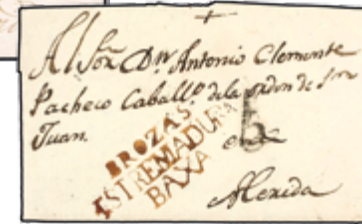 Al Sor Dn Antonio Clemente
Pacheco Caballo. de la orden de Sn
Juan.
BROZAS
ESTREMADURA
BAXA
5
en
Merida